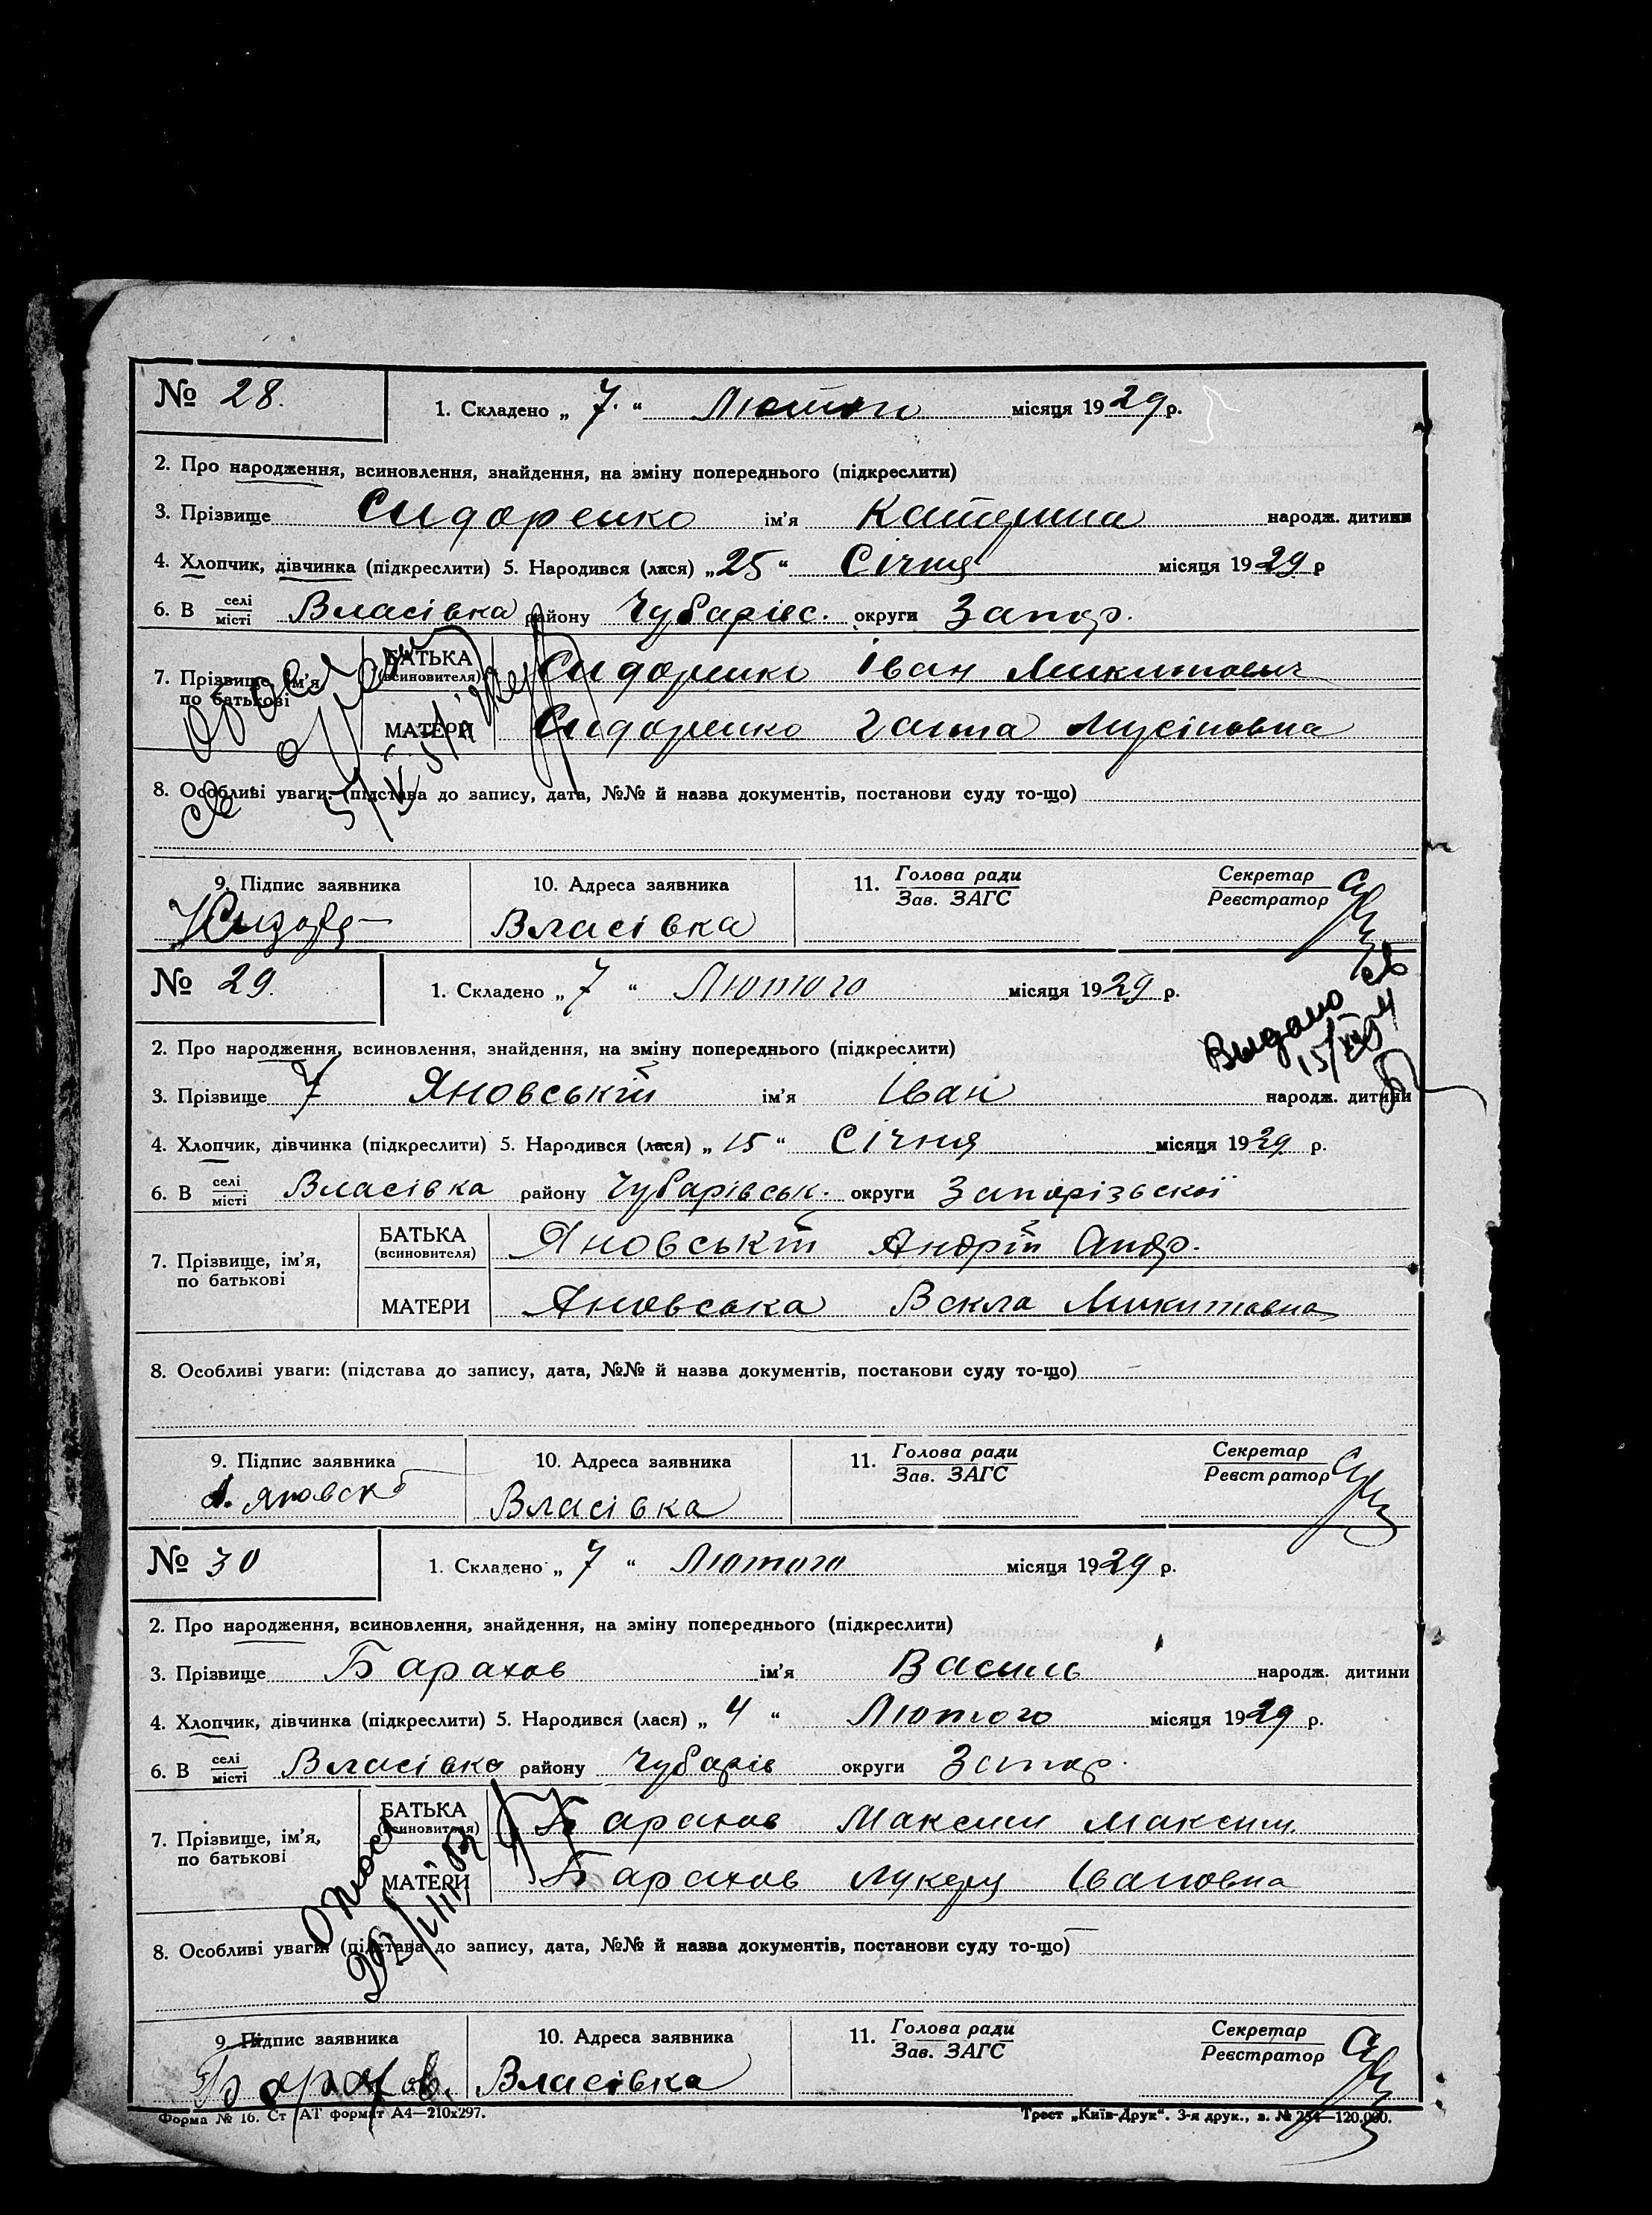 № 28. 1. Складено „ 7. “ Лютого місяця 1929 р.
2. Про народження, всиновлення, знайдення, на зміну попереднього (підкреслити)
3. Прізвище Сидоренко ім'я Катерина народж. дитини
4. Хлопчик, дівчинка (підкреслити) 5. Народився (лася) „ 25 “ Січня місяця 1929 р
6. В селі місті Власівка району Чубарівс. округи Запор.
7. Прізвище, ім'я по батькові
БАТЬКА (всиновителя) Сидоренко Іван Микитович
МАТЕРИ Сидоренко Ганна Мусіповна
8. Особливі уваги: (підстава до запису, дата, №№ й назва документів, постанови суду то-що)
9. Підпис заявника 10. Адреса заявника 11. Голова ради Зав. ЗАГС Секретар Реєстратор
Власівка
№ 29. 1. Складено „ 7 “ Лютого місяця 1929 р.
Выдано св
2. Про народження, всиновлення, знайдення, на зміну попереднього (підкреслити)
3. Прізвище Яновській ім'я Іван народж. дитини
4. Хлопчик, дівчинка (підкреслити) 5. Народився (лася) „ 15 “ Січня місяця 1929 р.
6. В селі місті Власівка району Чубарівськ. округи Запорізької
7. Прізвище, ім'я, по батькові
БАТЬКА (всиновителя) Яновській Андрій Андр.
МАТЕРИ Яновська Векла Микитовна
8. Особливі уваги: (підстава до запису, дата, №№ й назва документів, постанови суду то-що)
9. Підпис заявника 10. Адреса заявника 11. Голова ради Зав. ЗАГС Секретар Реєстратор
А. Яновск Власівка
№ 30 1. Складено „ 7 “ Лютого місяця 1929 р.
2. Про народження, всиновлення, знайдення, на зміну попереднього (підкреслити)
3. Прізвище Барахов ім'я Василь народж. дитини
4. Хлопчик, дівчинка (підкреслити) 5. Народився (лася) „ 4 “ Лютого місяця 1929 р.
6. В селі місті Власівка району Чубарів округи Запор.
7. Прізвище, ім'я, по батькові
БАТЬКА (всиновителя) Барахов Максим Максим.
МАТЕРИ Барахов Лукеря Івановна
8. Особливі уваги: (підстава до запису, дата, №№ й назва документів, постанови суду то-що)
9. Підпис заявника 10. Адреса заявника 11. Голова ради Зав. ЗАГС Секретар Реєстратор
Барахов. Власівка
Форма № 16. Ст АТ формат А4—210х297. Трест „Київ-Друк“. 3-я друк., з. № 254—120.000.